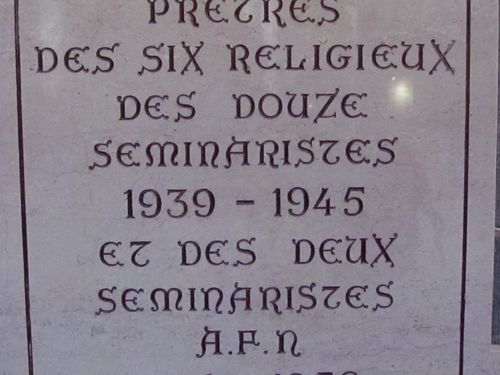 PRETRES
DES SIX RELIGIEUX
DES DOUZE
SEMINARISTES
1939 - 1945
ET DES DEUX
SEMINARISTES
A.F.N